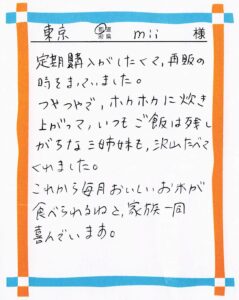 東京 都道府県 mii 様
定期購入がしたくて、再販の
時をまっていました。
つやつやで、ホカホカに炊き
上がって、いつもご飯は残し
がちな三姉妹も、沢山たべて
くれました。
これから毎月おいしいお米が
食べられるねと、家族一同
喜んでいまあ。